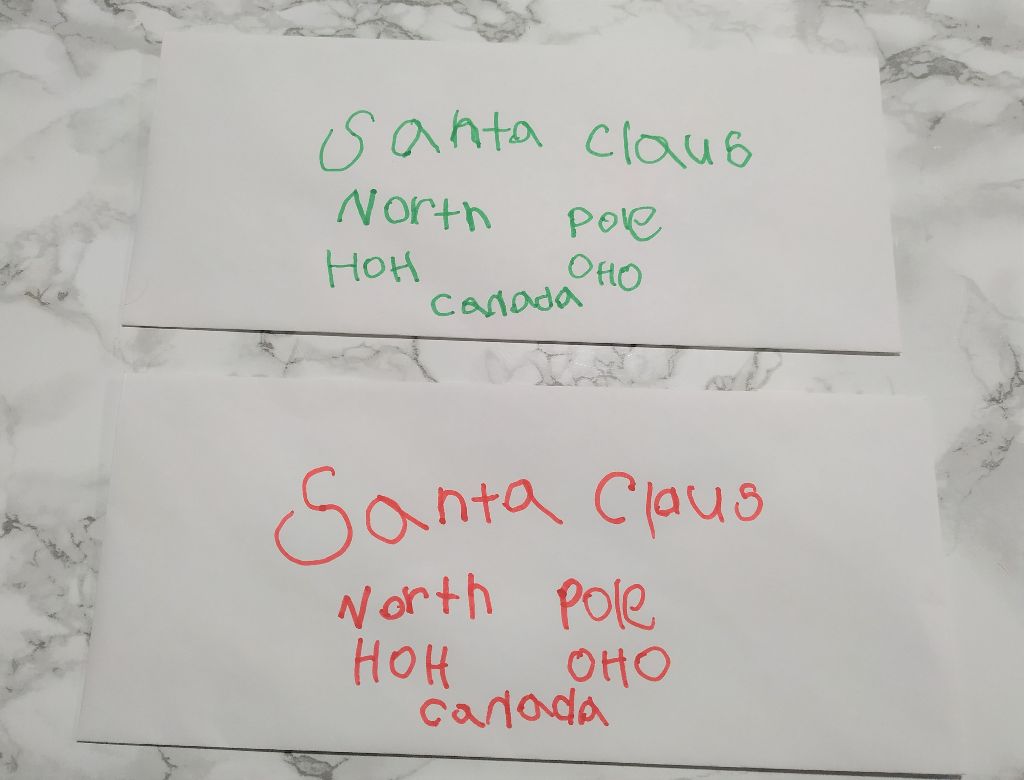 Santa Claus
North Pole
HOH OHO
Canada
Santa Claus
North Pole
HOH OHO
Canada